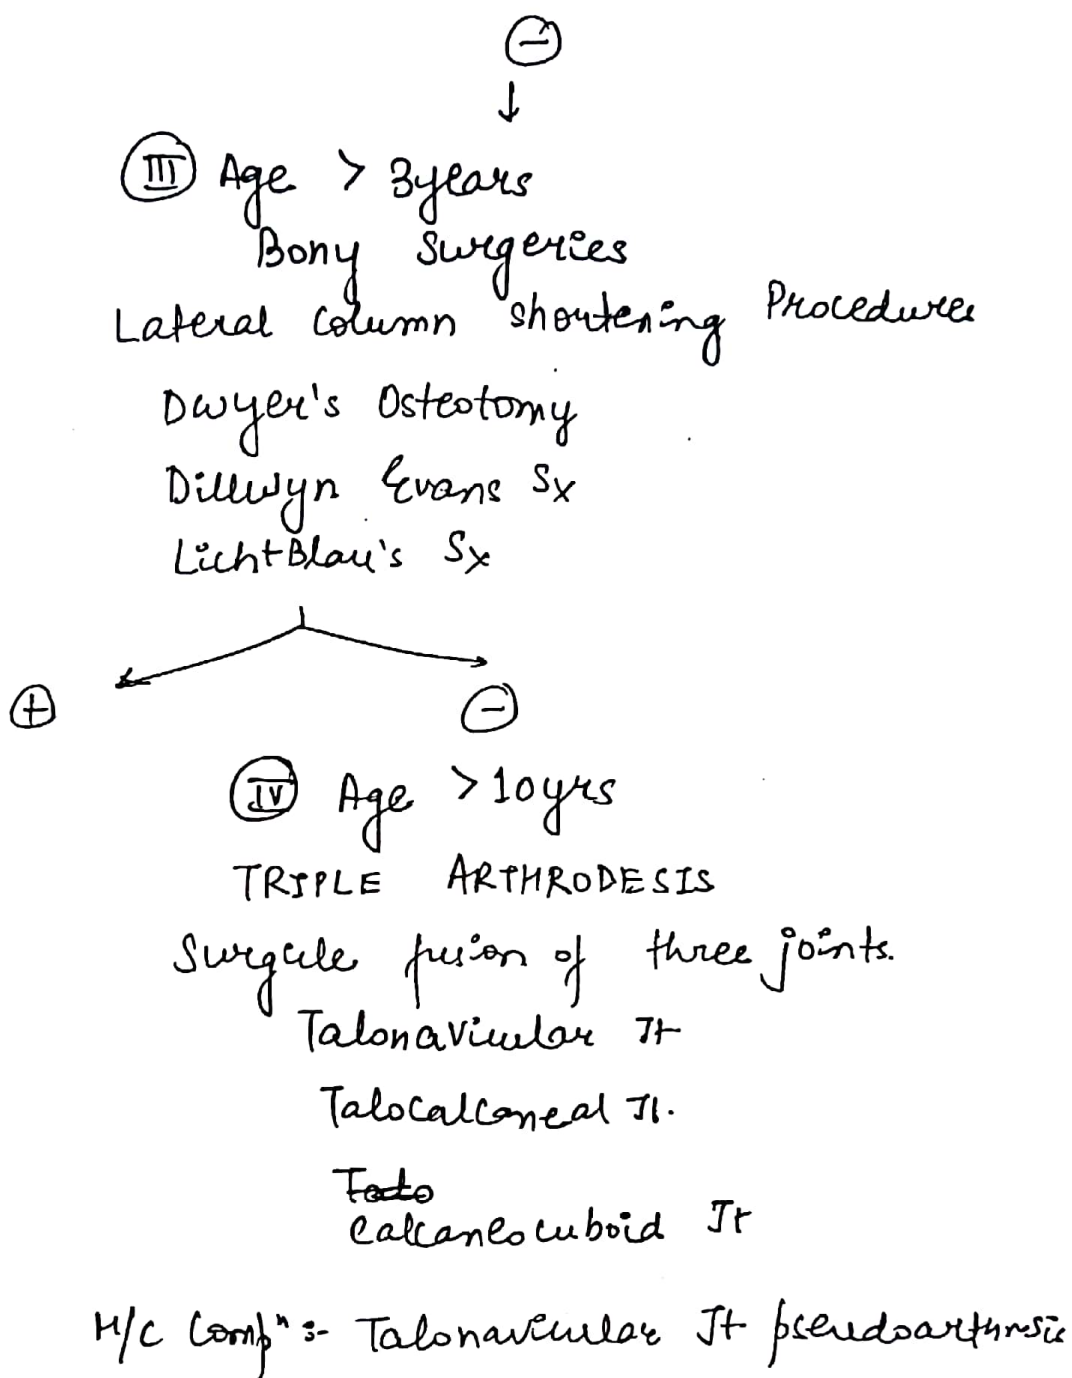 ⊖
↓
III Age > 3years
Bony Surgeries
Lateral Column Shortening Procedures
Dwyer's Osteotomy
Dillwyn Evans Sx
LichtBlau's Sx
⊕ ⊖
IV Age >10yrs
TRIPLE ARTHRODESIS
Surgicle fusion of three joints.
Talonavicular Jt
Talocalconeal Jt.
Calcaneocuboid Jt
M/C Compⁿ :- Talonavicular Jt pseudoarthrosis